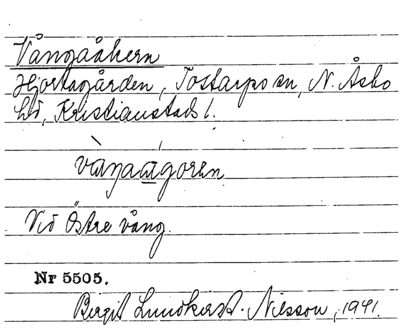 Vångaåkern
Hjortagården, Tostarp sn, N. Åsbo
hd, Kristianstads l.
Vid Östre vång.
Nr 5505.
Birgit Lundkvist-Nilsson, 1941.